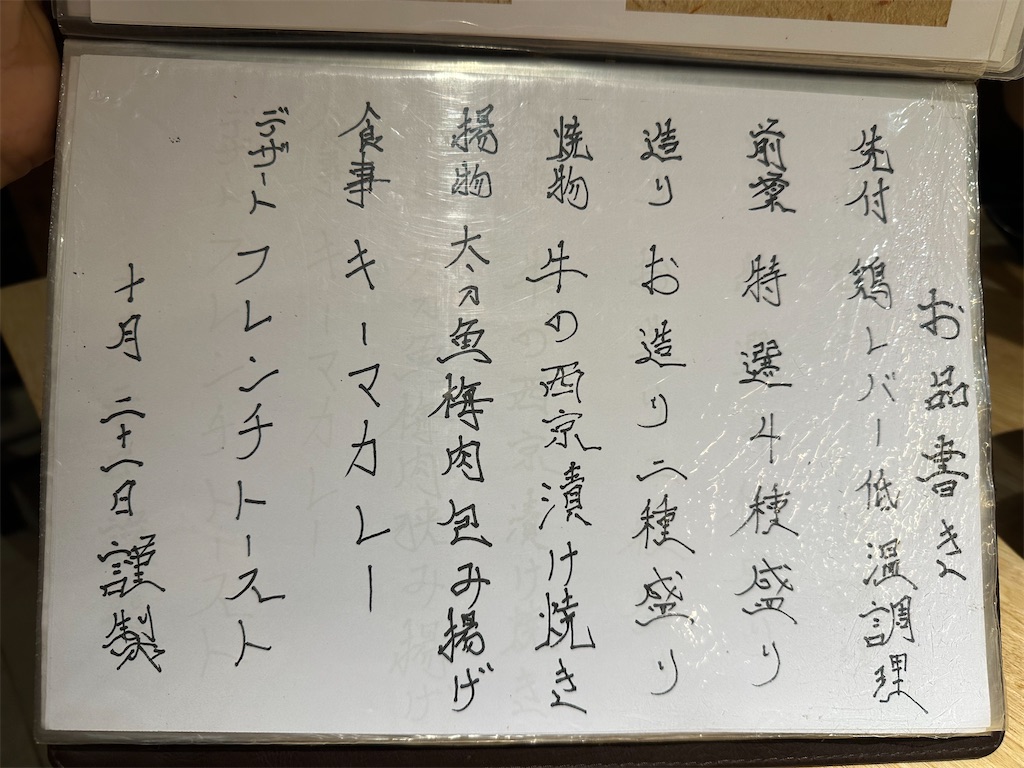 お品書き
先付 鶏レバー低温調理
前菜 特選4種盛り
造り お造り二種盛り
焼物 牛の西京漬け焼き
揚物 太刀魚梅肉包み揚げ
食事 キーマカレー
デザート フレンチトースト
十月 二十一日謹製